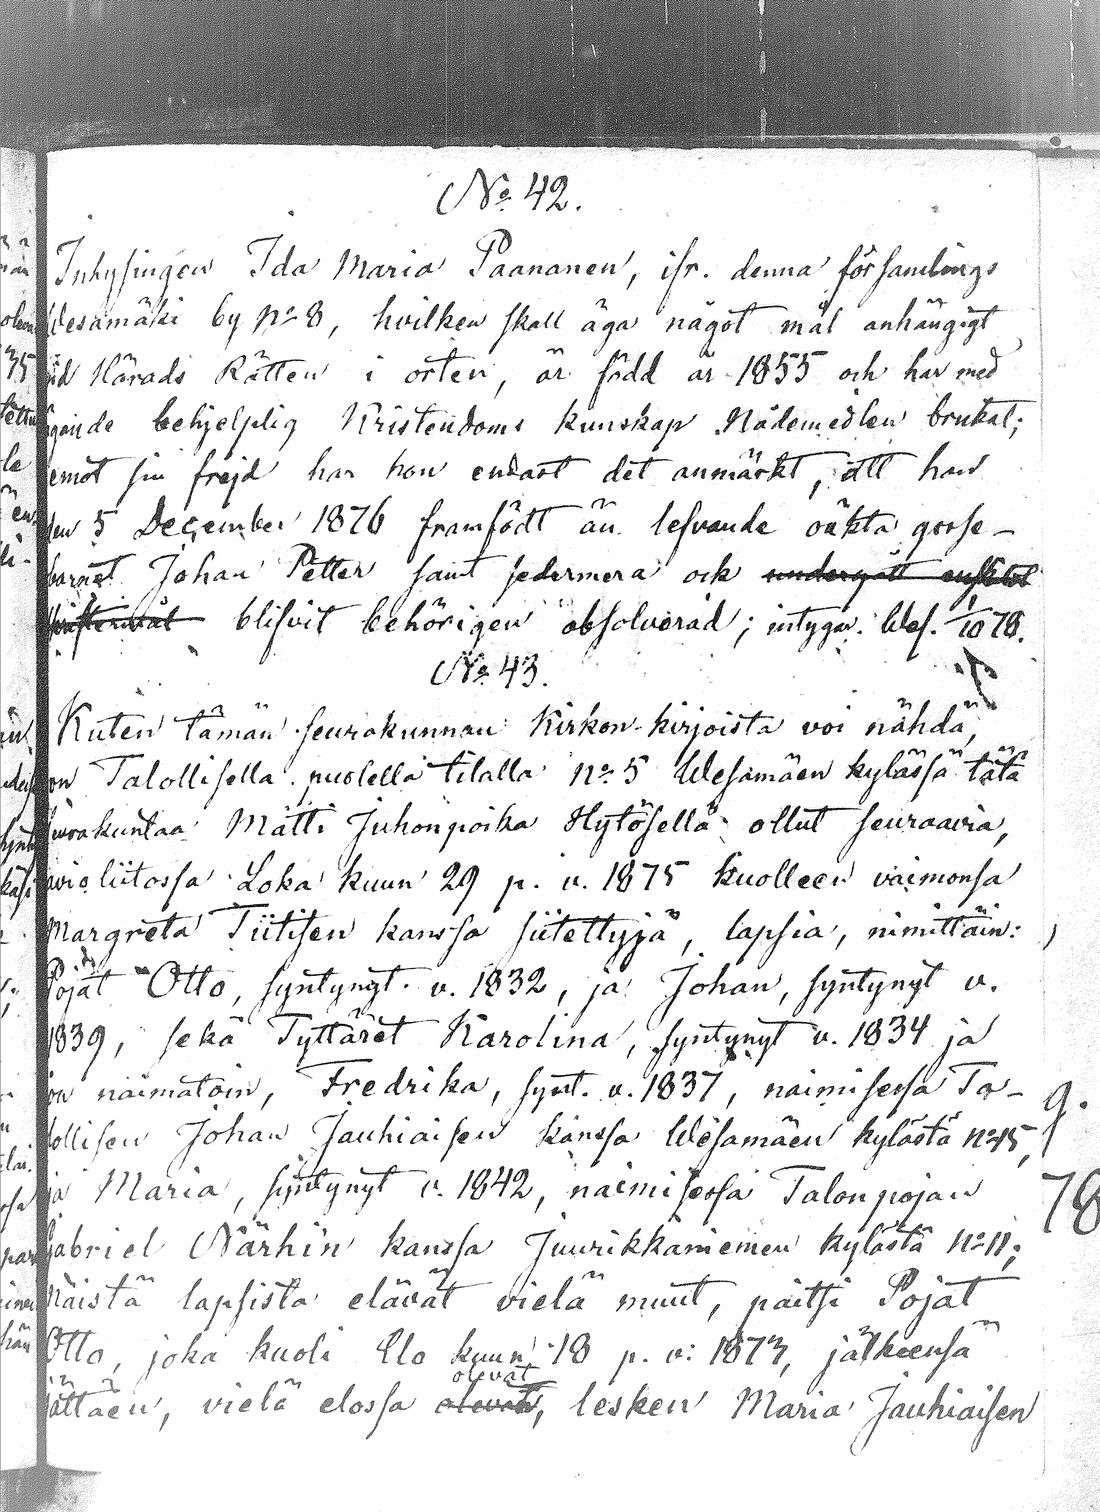 No. 42.
Inhysingen Ida Maria Paananen, ifr. denna församlings
Wesamäki by No 8, hvilken skall äga något mål anhängigt
vid Härads Rätten i orten, är född år 1855 och har med
ägande behjelplig Kristendoms kunskap Nådemedlen brukat;
emot sin frejd har hon endast det anmärkt, att hon
den 5 December 1876 framfödt än lefvande oäkta gosse-
barnet Johan Petter samt sedermera ock undergått enskilt
skriftermål blifvit behörigen absolverad; intygar. Wes. 1/10 78.
No. 43.
Kuten tämän seurakunnan Kirkon-kirjoista voi nähdä,
on Talollisella puolella tilalla No 5 Wesamäen kylässä tätä
seurakuntaa Matti Juhonpoika Hytösellä ollut seuraavia,
avioliitossa Loka kuun 29 p. v. 1875 kuolleen vaimonsa
Margreta Tiitisen kanssa siitettyjä, lapsia, nimittäin:
Pojat Otto, syntynyt v. 1832, ja Johan, syntynyt v.
1839, sekä Tyttäret Karolina, syntynyt v. 1834 ja
on naimatoin, Fredrika, synt. v. 1837, naimisessa Ta-
lollisen Johan Jauhiaisen kanssa Wesamäen kylästä No 15,
ja Maria, syntynyt v. 1842, naimisessa Talonpojan
Gabriel Närhin kanssa Juurikkaniemen kylästä No 11;
Näistä lapsista elävät vielä muut, paitsi Pojat
Otto, joka kuoli Elo kuun 18 p. v. 1873, jälkeensä
olevat
jättäen, vielä elossa olevan, lesken Maria Jauhiaisen
78